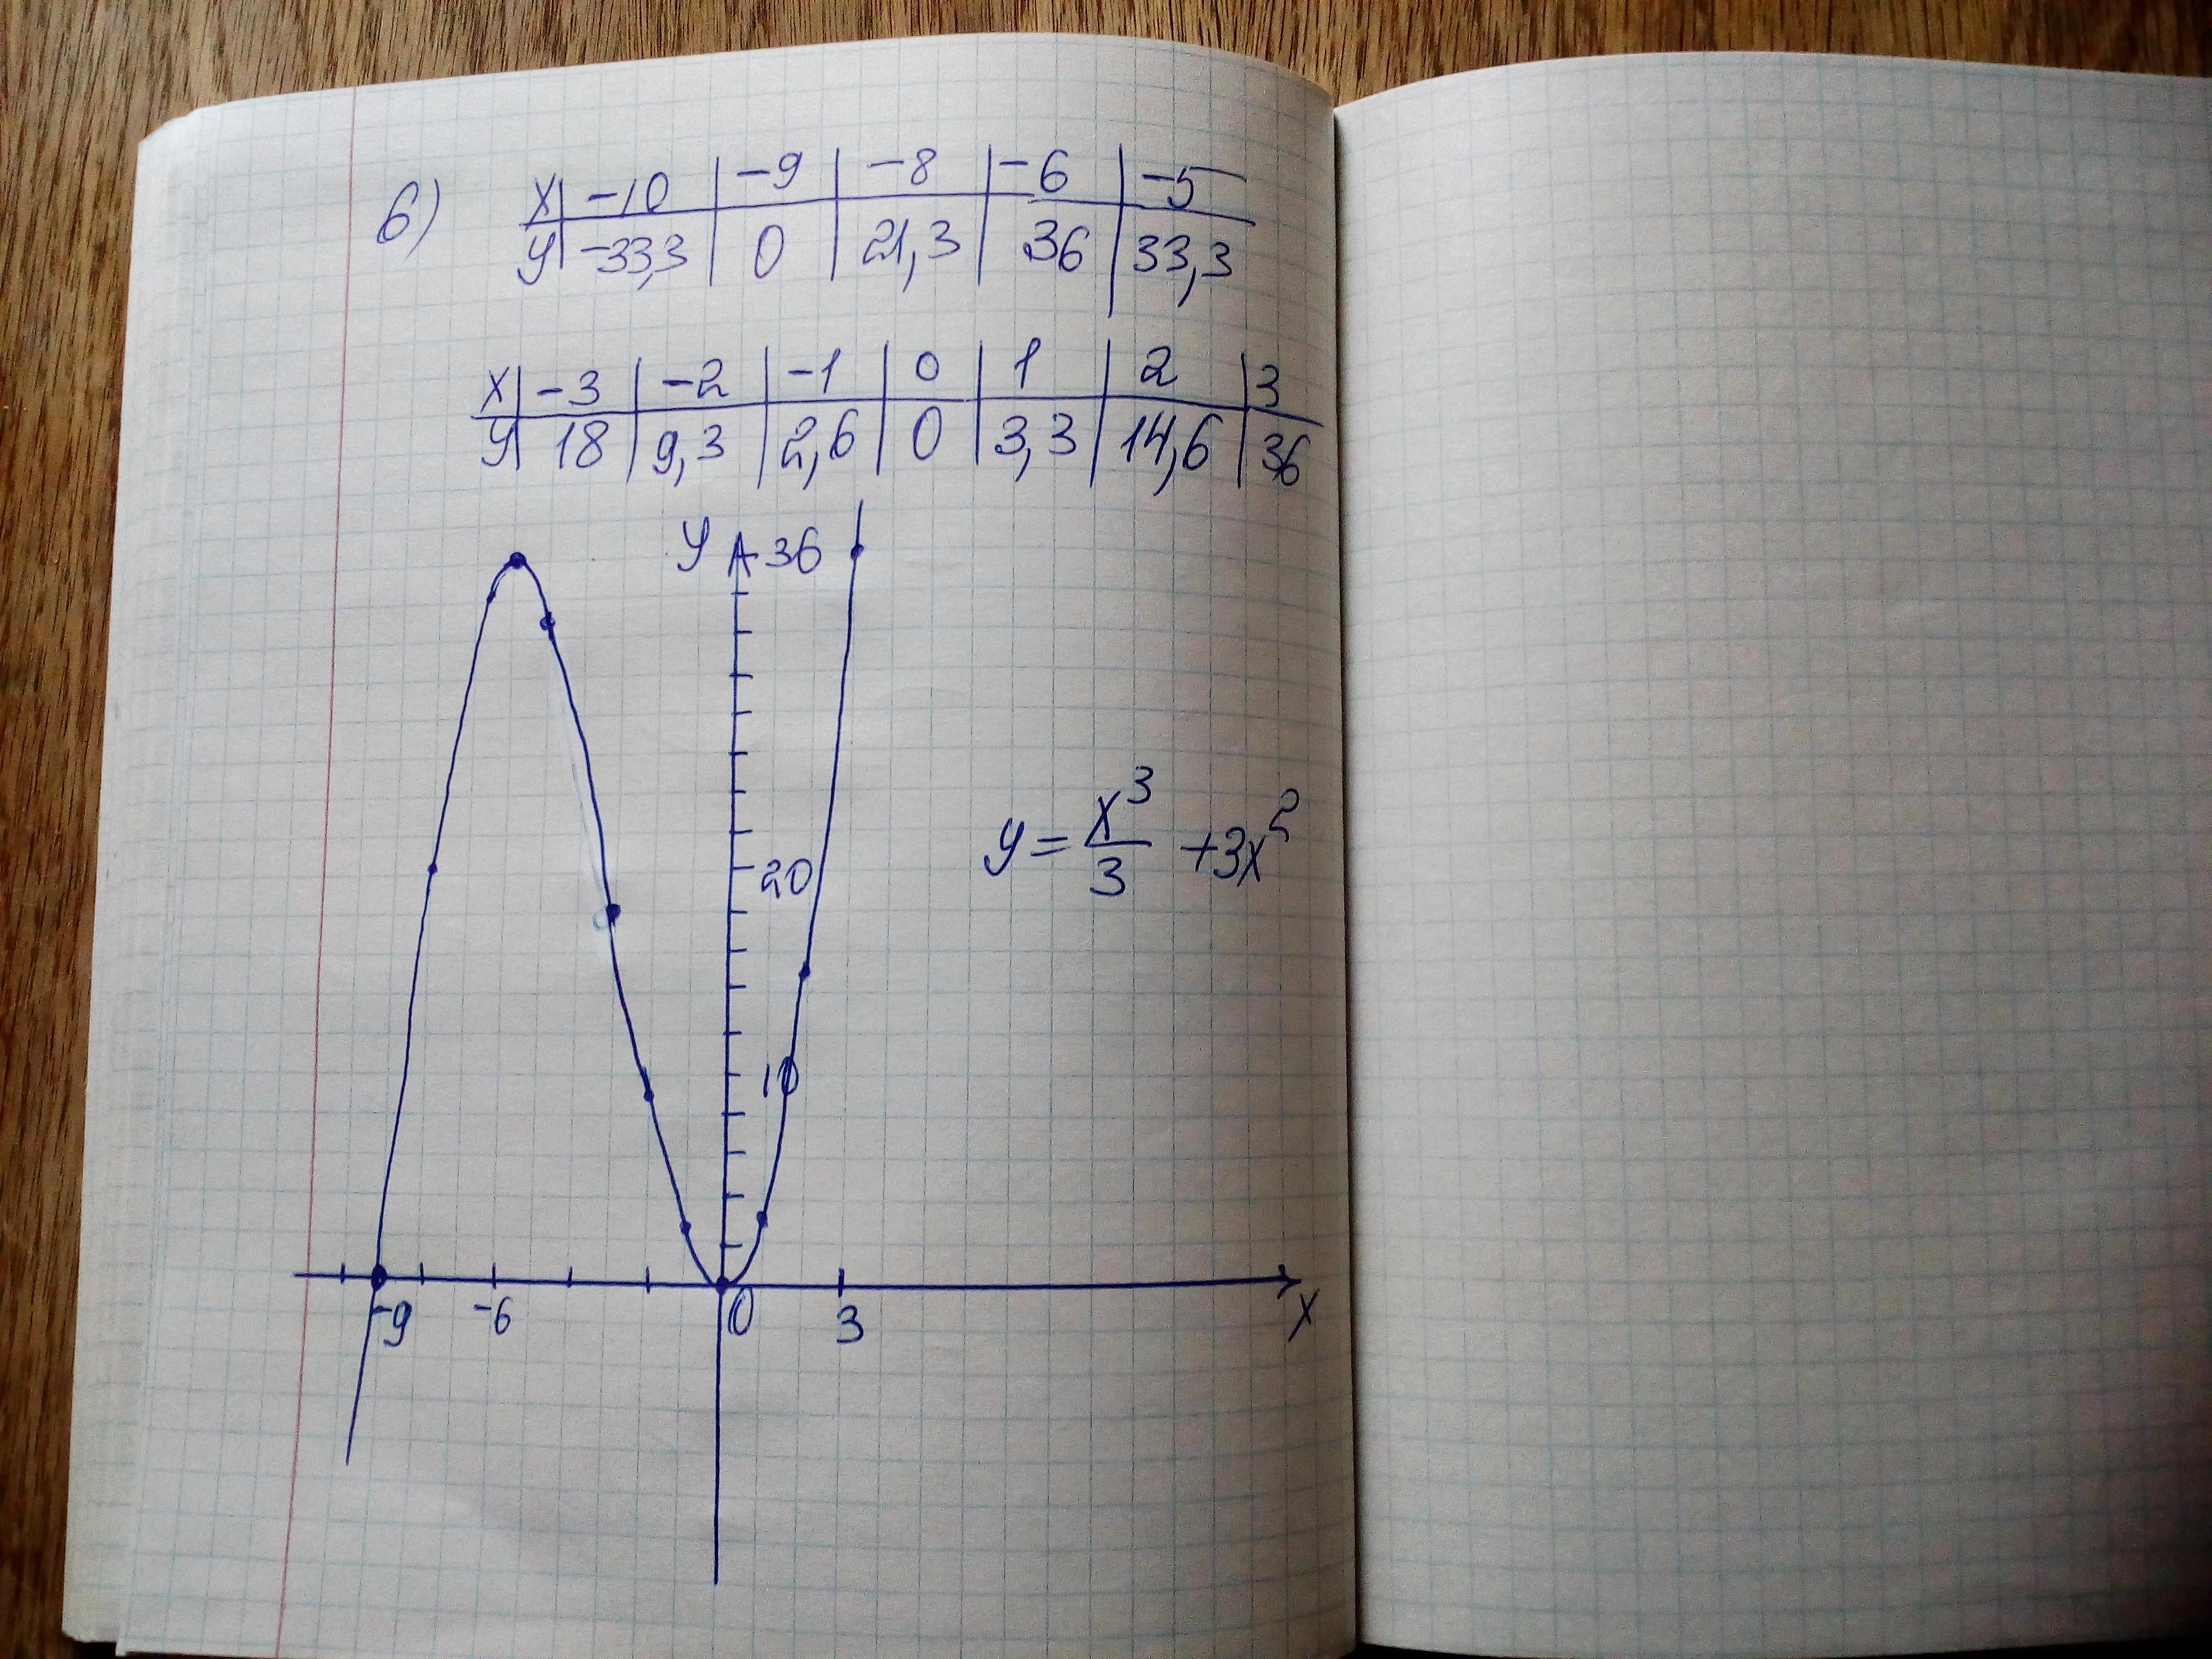 6)
x | -10 | -9 | -8 | -6 | -5
y | -33,3 | 0 | 21,3 | 36 | 33,3
x | -3 | -2 | -1 | 0 | 1 | 2 | 3
y | 18 | 9,3 | 2,6 | 0 | 3,3 | 14,6 | 36
y 36
y = x³/3 + 3x²
20
10
-9 -6 0 3 x